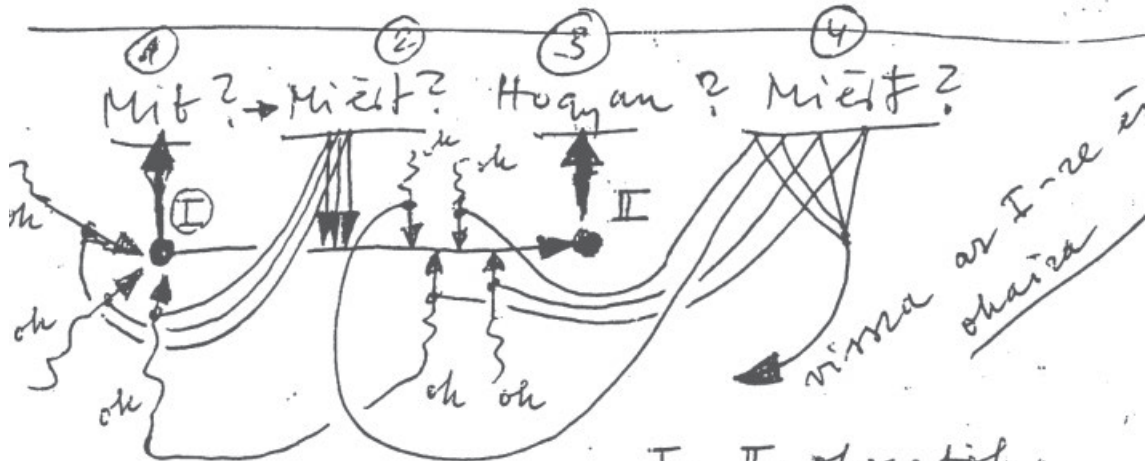 1 2 3 4
Mit? → Miért? Hogyan? Miért?
ok ok
ok I II
ok
ok ok ok
vissza az I-re és
okaira
I II